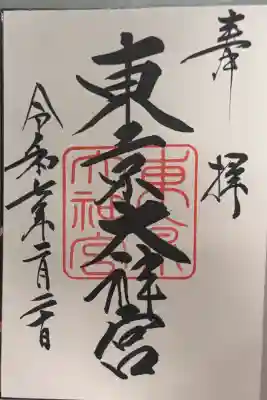 奉拝
東京大神宮
東京
大神宮
令和七年二月二十日